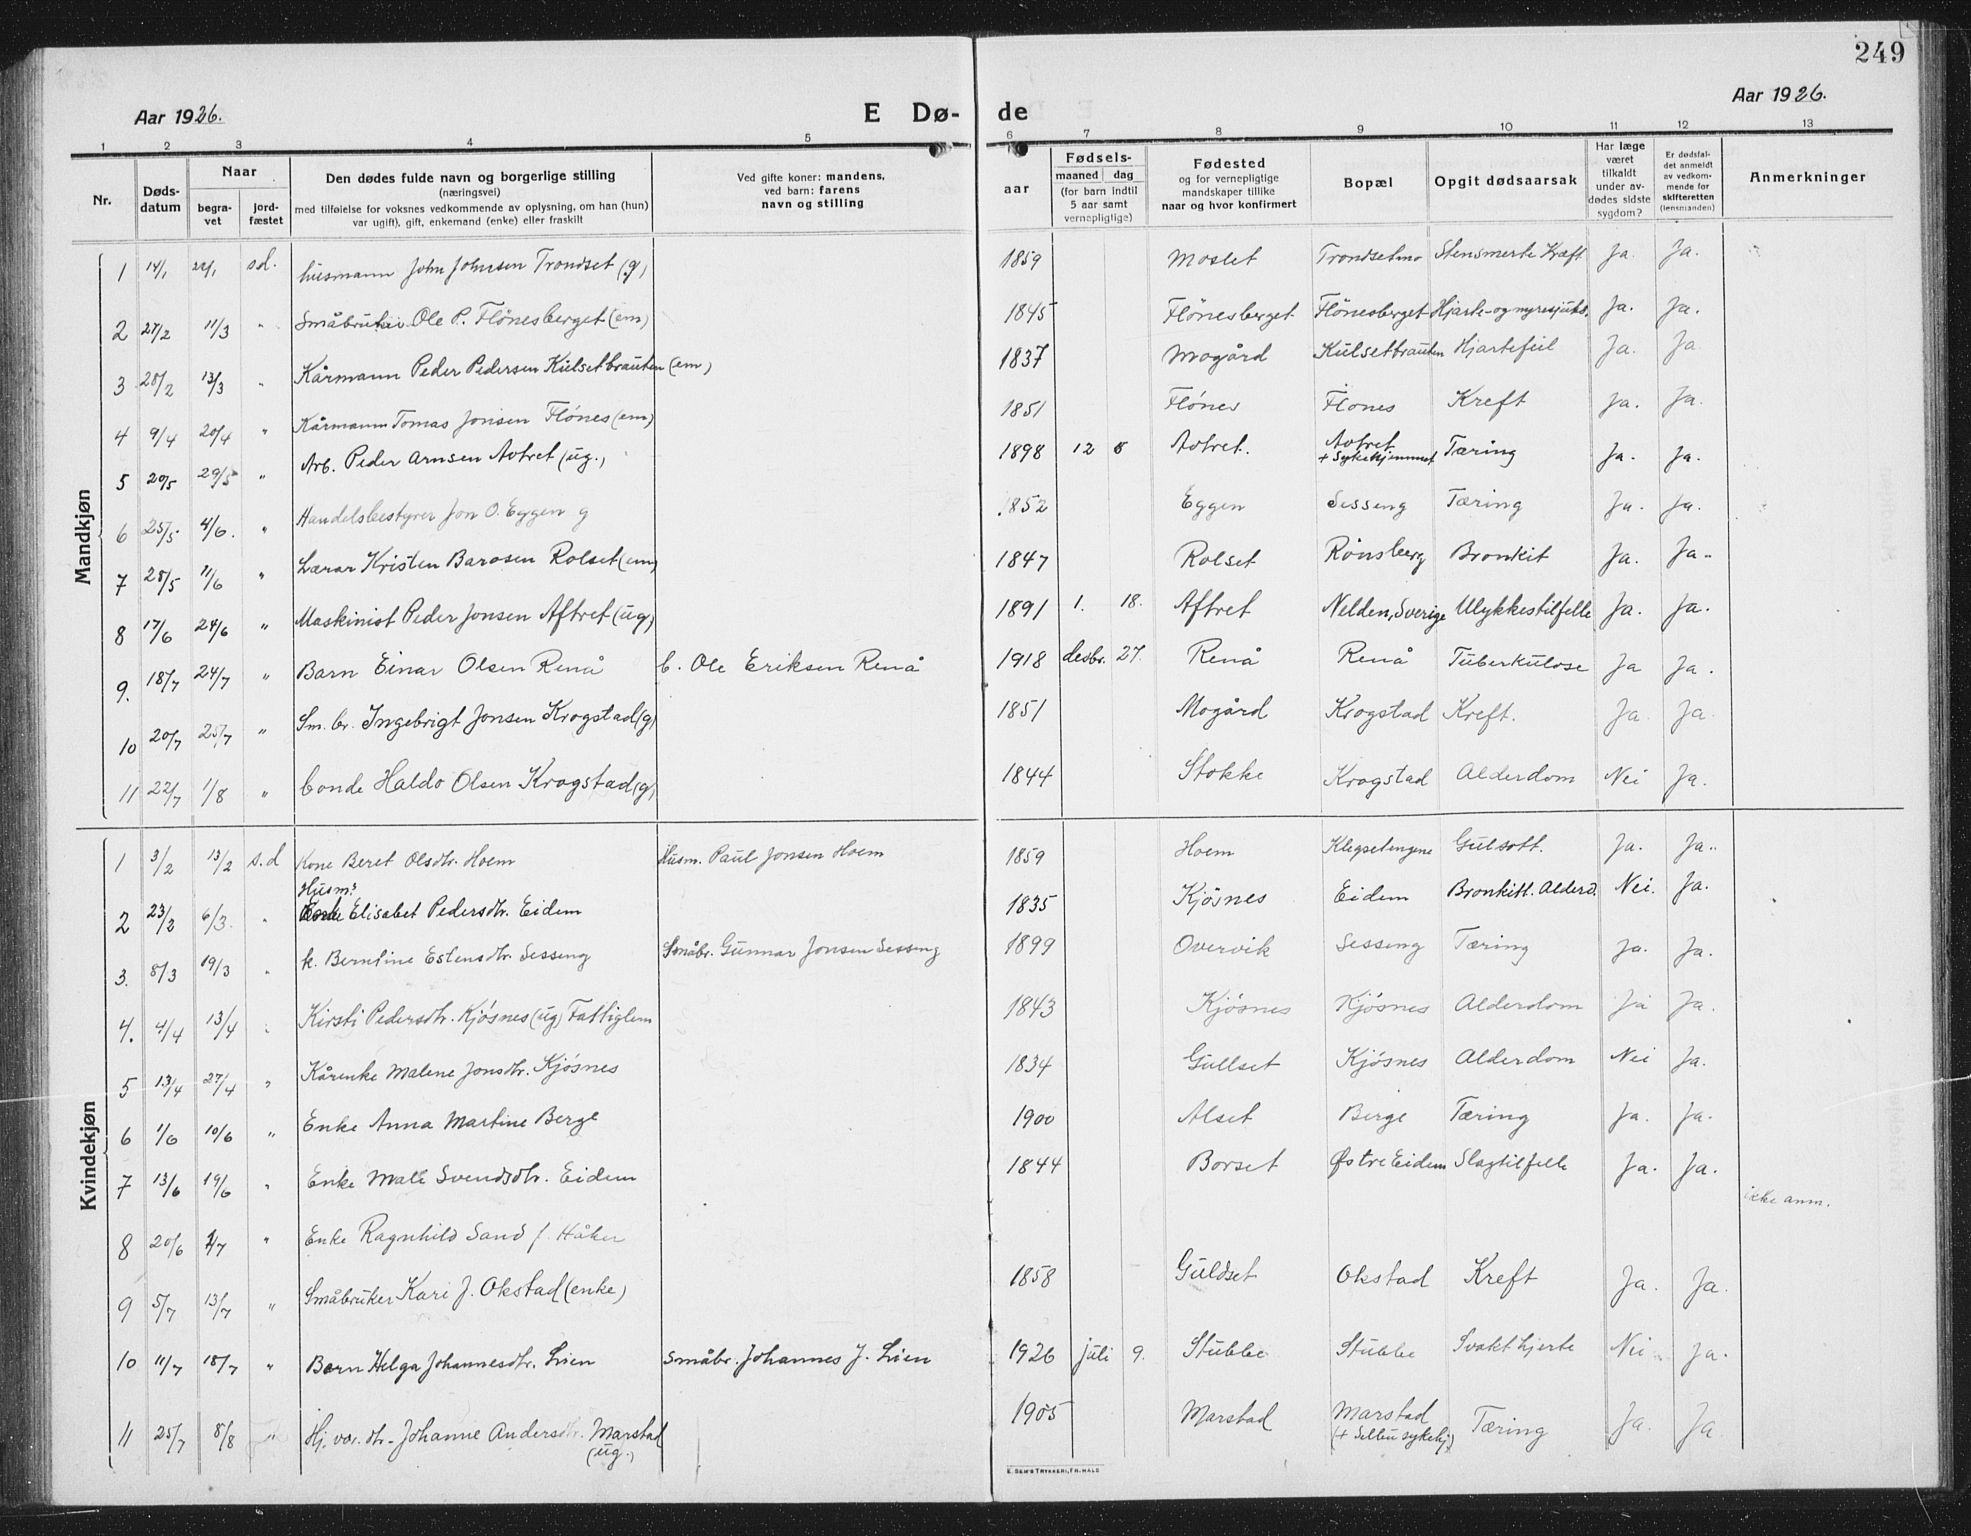 249
Aar 1926. E Dø- de Aar 1926.
1 2 3 4 5 6 7 8 9 10 11 12 13
Nr.
Døds-
datum
Naar
begra-
vet
jord-
fæstet
Den dødes fulde navn og borgerlige stilling
(næringsvei)
med tilføielse for voksnes vedkommende av oplysning, om han (hun)
var ugift), gift, enkemand (enke) eller fraskilt
Ved gifte koner: mandens,
ved barn: farens
navn og stilling
aar
Fødsels-
maaned dag
(for barn indtil
5 aar samt
vernepligtige)
Fødested
og for vernepligtige
mandskaper tillike
naar og hvor konfirmert
Bopæl
Opgit dødsaarsak
Har læge
været
tilkaldt
under av-
dødes sidste
sygdom?
Er dødsfal-
det anmeldt
av vedkom-
mende for
skifteretten
(lensmanden)
Anmerkninger
Mandkjøn
1 14/1 22/1 s.d. husmann John Johnsen Trondset (g) 1859 Moslet Trondsetmo Kræft Ja. Ja.
2 27/2 11/3 " Småbruker Ole P. Flönesberget (em) 1845 Flönesberget Flönesberget Hjarte- og nyresjukd. Ja. Ja.
3 28/2 13/3 " Kårmann Peder Pedersen Kulsetbrauten (em) 1837 Mogård Kulsetbrauten Hjartefeil Ja. Ja
4 9/4 20/4 " Kårmann Tomas Jonsen Flönes (em) 1851 Flönes Flones Kreft Ja. Ja.
5 20/5 29/5 " Arb. Peder Arnsen Avtret (ug.) 1898 12 8 Avtret. Avtret + Sykehjemmet Tæring Ja. Ja.
6 25/5 4/6. " Handelsbestyrer Jon O. Eggen g 1852 Eggen Sesseng Tæring Ja. Ja.
7 28/5 11/6 " Lærar Kristen Barosen Rolset (em) 1847 Rolset Rönsberg Bronkit Ja. Ja.
8 17/6 24/6 " Maskinist Peder Jonsen Aftret (ug) 1891 1. 18. Aftret Nelden, Sverige Ulykkestilfelle Ja. Ja.
9. 18/7 24/7 " Barn Einar Olsen Renå b. Ole Eriksen Renå 1918 desbr. 27. Renå Renå Tuberkulose Ja Ja.
10 20/7 25/7 " Sm. br. Ingebrigt Jonsen Krogstad (g) 1851 Mogård Krogstad Kreft. Ja Ja.
11 22/7 1/8 " bonde Haldo Olsen Krogstad (g) 1844 Stokke Krogstad Alderdom Nei Ja.
Kvindekjøn
1 3/2 13/2 s.d Kone Beret Olsdtr. Hoem Husm. Paul Jonsen Hoem 1859 Hoem Gulsott. Ja. Ja.
Husm.
2 23/2 6/3. " Elisabet Pedersdtr. Eidem 1835 Kjösnes Eidem Bronkitt. Alderd. Nei. Ja.
3. 8/3 19/3 " k. Berntine Estensdtr. Sesseng Småbr. Gunnar Jonsen Sesseng 1899 Overvik Sesseng Tæring Ja. Ja.
4. 4/4 13/4 " Kirsti Pedersdtr. Kjösnes (ug) Fattiglem 1843 Kjösnes Kjösnes Alderdom Ja Ja.
5 13/4 27/4 " Kårenke Malene Jonsdtr. Kjösnes 1834 Gullset Kjösnes Alderdom Nei Ja.
6 1/6 10/6 " Enke Anna Martine Berge 1900 Alset Berge Tæring Ja. Ja.
7 13/6 19/6 " Enke Malé Svendsdtr. Eidem 1844 Borset Østre Eidem Slagtilfelle Ja. Ja.
8 20/6 1/7 " Enke Ragnhild Sand f. Håker ikke anm.
9 5/7 13/7 " Småbruker Kari J. Okstad (enke) 1858 Guldset Okstad Kreft Ja. Ja.
10 11/7 18/7 " Barn Helga Johannesdtr. Lien Småbr. Johannes J. Lien 1926 juli 9. Stubbe Stubbe Svakt hjerte Nei Ja.
11 25/7 8/8 " Hj. vær. dtr. Johanne Andersdtr. Marstad (ug.) 1905 Marstad Marstad (+ Selbu sykehj.) Tæring Ja. Ja
E. SEM'S TRYKKERI, FR.HALD